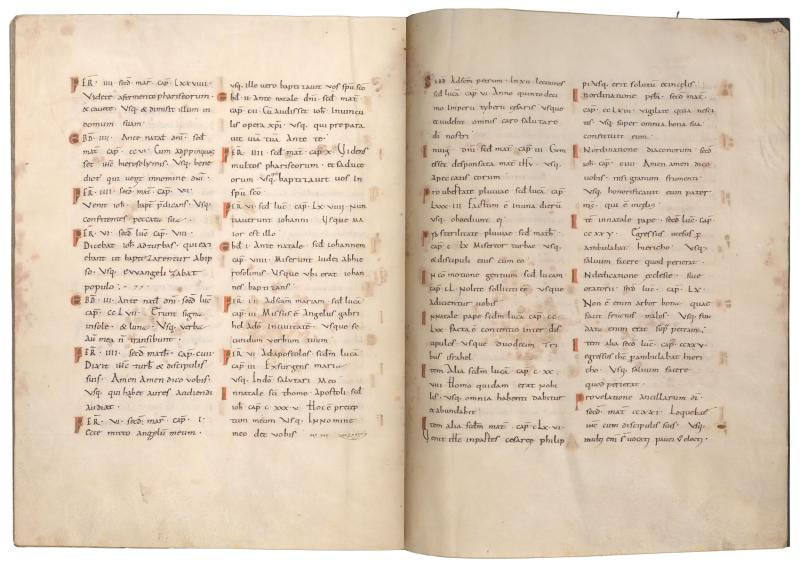 FER · IIII · secd mat cap LXXVIIII ·
Videte afermento phariseorum ·
& cavete · Usq · & dimisit illum in
domum suam ·
EBD · IIII · Ante natal dni · secd
mat cap · CCVI · Cum appropinquas
set ihs hierosolymis · Usq · bene
dict qui venit innomine dni ·
FER · IIII · secd mat cap · VII ·
Venit ioh · bapt pdicans · Usq ·
confitentes peccata sua ·
FER · VI · secd luc cap · VIII ·
Dicebat ioh adturbas · qui exi
ebant ut baptizarentur Abip
so · Usq · evvangelizabat
populo ·
EBD · III · Ante natl dni · secd luc
cap · CCLVII · Erunt signa
insole · & luna · Usq · verba
au mea n transibunt ·
FER · IIII · secd math · cap · CVIII
Dixit ihc turb & discipulis
suis · Amen amen dico vobis ·
Usq · qui habet aures audiendi
audiat ·
FER · VI · secd mat cap · I ·
Ecce mitto angelu meum ·
usq · ille vero baptizavit vos spu sco
EBD · II · Ante natale dni · secd mat
cap · CII · Cu audisset ioh invincu
lis opera xpi · Usq · qui prepara
vit via tua ante te ·
FER · IIII · secd mat cap · X · Videns
multos phariseorum · et saduce
orum · Usq · baptizavit vos in
spu sco
FER · VI · secd luc cap · LXVIII · Nun
tiaverunt iohanni · Usque ma
ior est illo
EBD · I · Ante natale · secd iohannem
cap · VIIII · Miserunt iudei abhie
rosolimis · Usque ubi erat iohan
nes baptizans ·
FER · II · Adscam mariam · secd luca
cap · III · Missus e Angelus gabri
hel adm inciuitate · Usque se
cundum verbum tuum
FER · VI · Adapostolos · secdm luca
cap · IIII · Exsurgens maria
Usq · Indo salutari meo
Innatale sci thome · Apostoli · secd
ioh cap · CXXXV · Hoc e precep
tum meum · Usq · In nomine
meo det vobis ·
secd luca cap · VI · Anno quinto deci
mo imperii tyberii cesaris · Usque
et videbit omnis caro salutare
di nostri ·
dni · secd mat cap · III · Cum
esset desponsata mat
a peccatis eorum ·
Pro ubertate pluviae · secd luca cap ·
LXXXIII · Factum e in una dieru
usq · obediunt ei ·
sterilitate pluviae · secd math ·
cap · CLX · Misereor turbae · Usq ·
& discipuli eius cum eo
In comotione gentium · secd lucam
cap · CL · Nolite solliciti ee · Usque
adicientur vobis ·
Innatale pape · secdm luca cap · CC
LXX · facta e contentio inter dis
cipulos · Usque duodecim tri
bus israhel ·
Item Alia secdm luca cap · CXX
VIII · Homo quidam erat nobi
lis · Usq · omnia habenti dabitur
& abundabit ·
Item alia secdm mat cap · CLXVI ·
Venit ihc inpartes cesaree philip
pi · Usq · erit solutu et incelis ·
In ordinatione · secd mat ·
cap · CCLXIII · Vigilate quia nesci
tis · Usq · super omnia bona sua
constituet eum ·
In ordinatione diaconorum · secd
ioh · cap · CVIII · Amen amen dico
vobis · nisi granum frumenti ·
Usq · honorificavit eum pater
ms · qui e incelis ·
Ite innatale pape · secd luc · cap ·
CCXXV · Egressus iesus p
ambulabat hiericho · Usq ·
salvum facere quod perierat ·
In dedicatione ecclesie · sive
oratorii · secd luc · cap · LX ·
Non e enim arbor bona · quae
facit fructus malos · Usq · fun
data enim erat sup petram ·
Item alia secd luca · cap · CCXXV ·
egressus ihc pambulabat hieri
cho · Usq · salvum facere
quod perierat ·
Pro velatione ancillarum di ·
secd · mat · CCXXI · Loquebat
ihc cum discipulis suis · Usq ·
multi eni s vocati pauci v electi ·